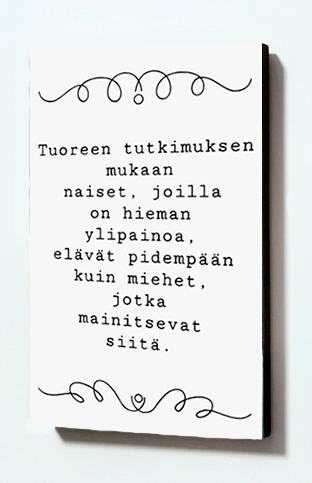 Tuoreen tutkimuksen
mukaan
naiset, joilla
on hieman
ylipainoa,
elävät pidempään
kuin miehet,
jotka
mainitsevat
siitä.